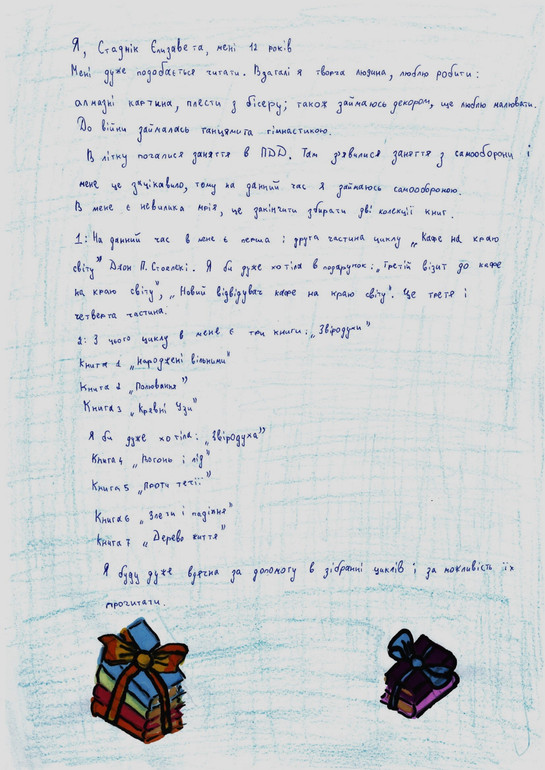 Я, Стаднік Єлизавета, мені 12 років
Мені дуже подобається читати. Взагалі я творча людина, люблю робити:
алмазні картина, плести з бісеру; також займаюсь декором, ще люблю малювати.
До війни займалась танцями та гімнастикою.
В літку почалися заняття в ПДД. Там зявилися заняття з самооборони і
мене це зацікавило, тому на данний час я займаюсь самообороною.
В мене є невилика мрія, це закінчити збирати дві колекції книг.
1: На данний час в мене є перша і друга частина циклу „Кафе на краю
світу" Джон П. Стрелекі. Я би дуже хотіла в подарунок: „Третій візит до кафе
на краю світу", „Новий відвідувач кафе на краю світу". Це третя і
четверта частина.
2: З цього циклу в мене є три книги: „Звіродухи"
Книга 1 „Народжені вільними"
Книга 2 „Полювання"
Книга 3 „Кревні Узи"
Я би дуже хотіла: „Звіродуха"
Книга 4 „Вогонь і лід"
Книга 5 „Проти течії"
Книга 6 „Злети і падіння"
Книга 7 „Дерево життя"
Я буду дуже вдячна за допомогу в зібранні циклів і за можливість їх
прочитати.